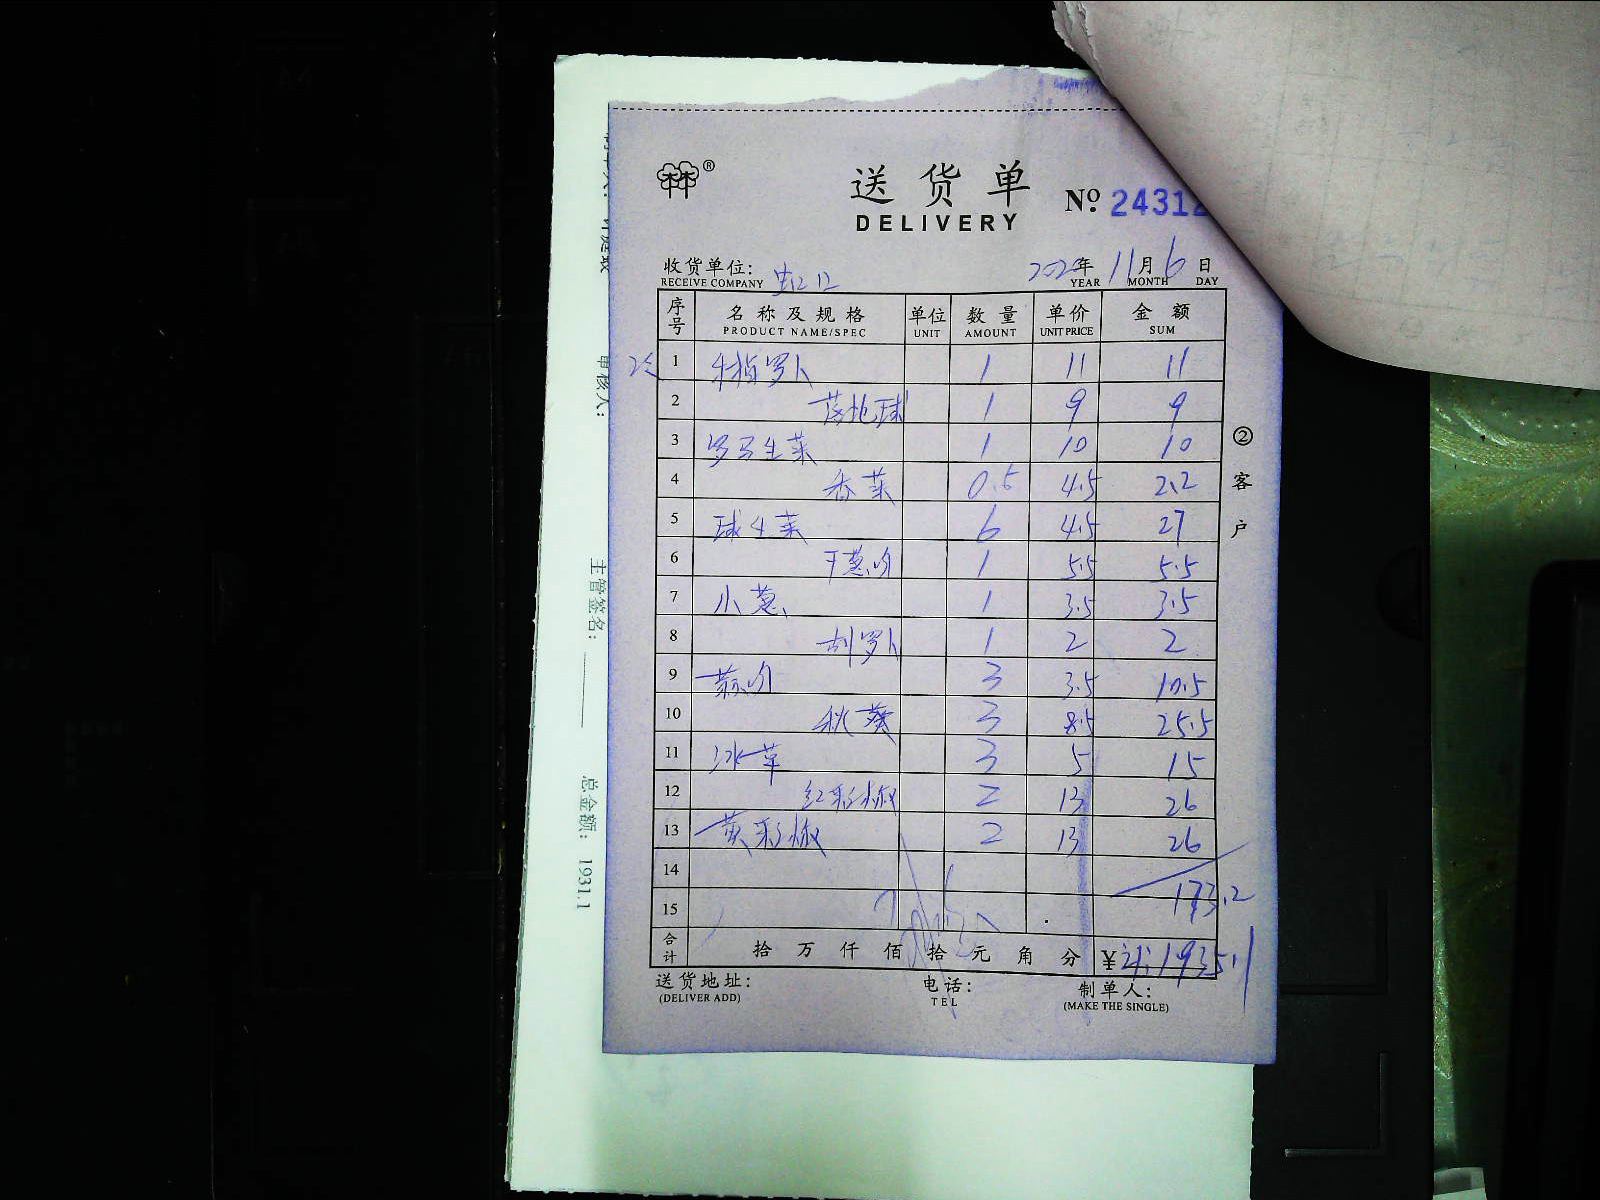 送货单
DELIVERY
® № 24312
收货单位:
RECEIVE COMPANY
年 11月 6日
YEAR MONTH DAY
序号 名称及规格 单位 数量 单价 金额
PRODUCT NAME/SPEC UNIT AMOUNT UNIT PRICE SUM
1 罗卜 1 11 11
2 落地球 1 9 9
3 罗马生菜 1 10 10
4 香菜 0.5 4.5 2.2
5 球生菜 6 4.5 27
6 干葱 1 5.5 5.5
7 小葱 1 3.5 3.5
8 胡罗卜 1 2 2
9 3 3.5 10.5
10 秋葵 3 8.5 25.5
11 冰草 3 5 15
12 红彩椒 2 13 26
13 黄彩椒 2 13 26
14
15 173.2
合计 拾 万 仟 佰 拾 元 角 分 ¥ 1935.1
送货地址: 电话: 制单人:
(DELIVER ADD) TEL (MAKE THE SINGLE)
② 客户
审核人:
主管签名:
总金额: 1931.1